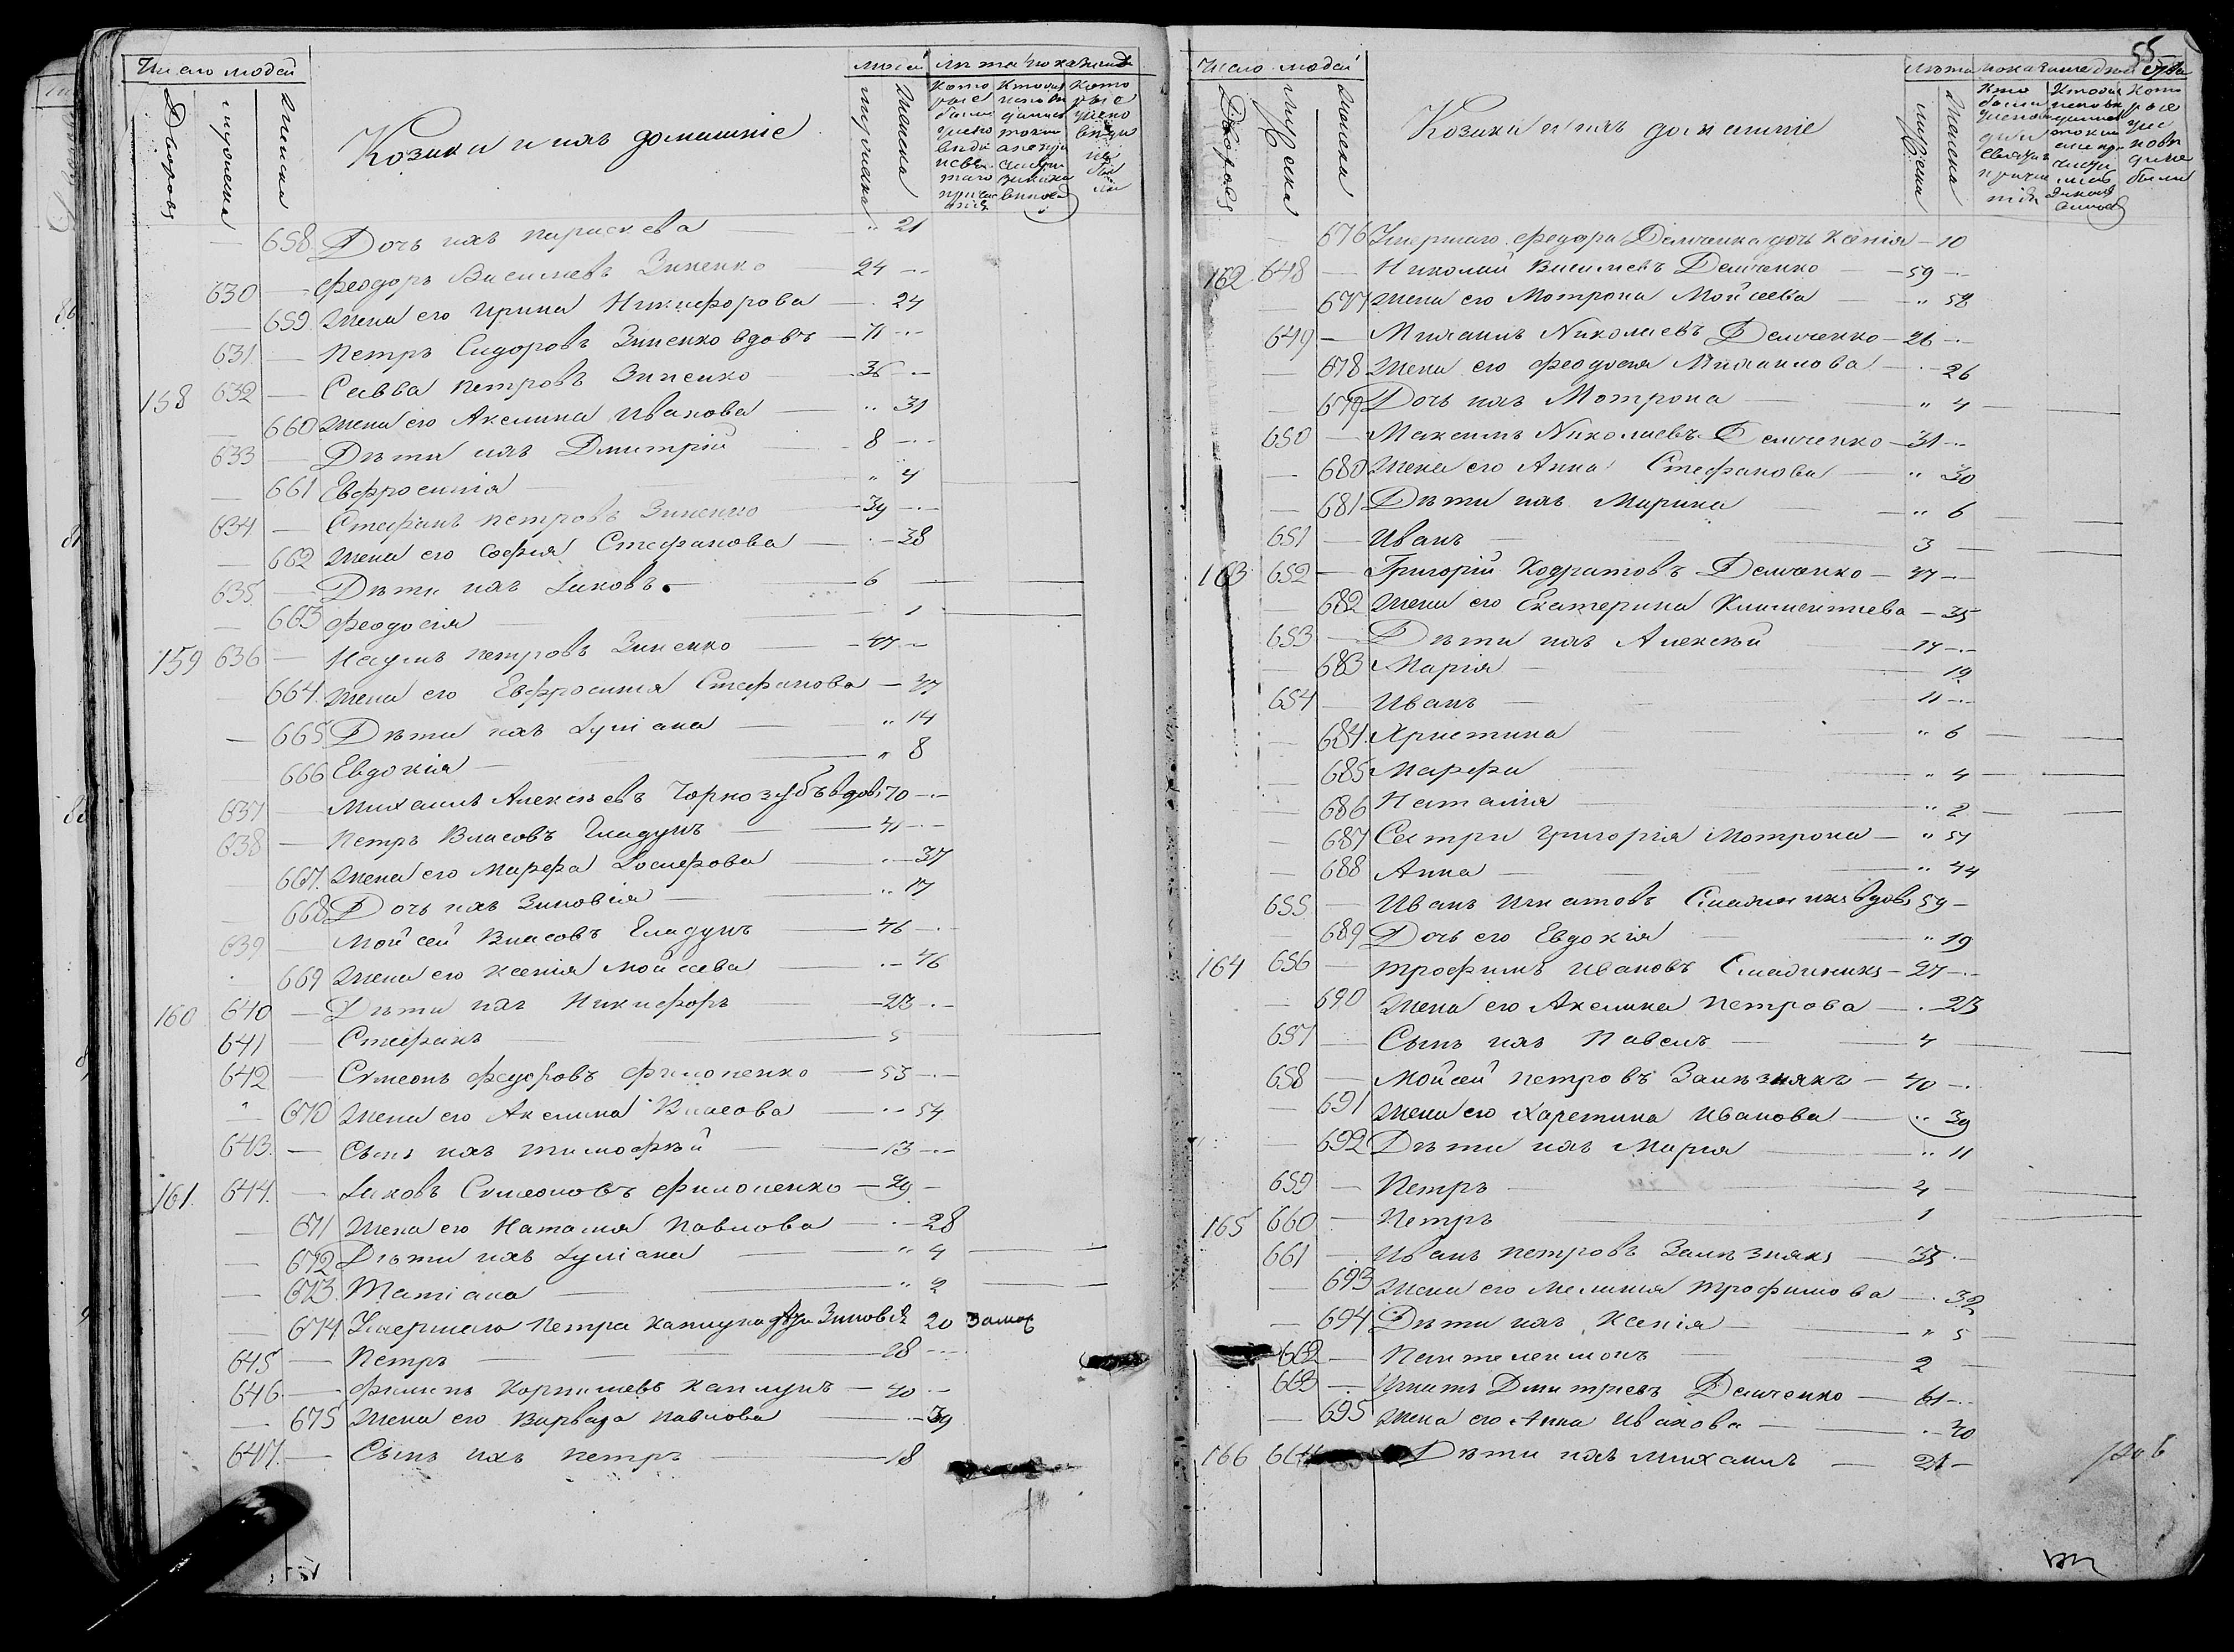 Число людей
Дворовъ
мужеска
женска
Козаки и ихъ домашніе
мужеска
женска
658 Дочь ихъ Параскева " 21
630 — Феодоръ Васильевъ Зиненко 24 —
659 Жена его Ирина Никифорова — 24
631 — Петръ Сидоровъ Зиненко вдовъ — 71 —
158 632 — Савва Петровъ Зиненко 36 —
660 Жена его Акилина Иванова " 31
633 — Дѣти ихъ Дмитрій 8 —
661 Евфросинія " 4
634 — Стефанъ Петровъ Зиненко 39 —
662 Жена его Софія Стефанова — 38
635 — Дѣти ихъ Іаковъ — 6
663 Феодосія 1
159 636 — Наумъ Петровъ Зиненко — 47 —
664 Жена его Евфросинія Стефанова — 47
665 Дѣти ихъ Іуліана " 14
666 Евдокія — " 8
637 — Михаилъ Алексѣевъ Чорнозубъ вдовъ 70 —
638 — Петръ Власовъ Гладунъ — 41 —
667 Жена его Марфа Іосифова — 37
668 Дочь ихъ Зиновія " 17
639 — Мойсей Власовъ Гладунъ — 46 —
669 Жена его Ксенія Мойсеева — 46
160 640 — Дѣти ихъ Никифоръ — 23 —
641 — Стефанъ — 5
642 — Симеонъ Федоровъ Филоненко — 53 —
670 Жена его Акилина Власова — 54
643 — Сынъ ихъ Тимофѣй — 13 —
161 644 — Іаковъ Симеоновъ Филоненко — 29 —
671 Жена его Наталія Павлова — 28
672 Дѣти ихъ Іуліана " 4
673 Татіана — " 2
674 Умершаго Петра Каплуна Зиновія 20 замуж
645 — Петръ — 28 —
646 — Филипъ Корнилевъ Каплунъ — 40 —
675 Жена его Варвара Павлова — 39
647 — Сынъ ихъ Петръ — 18
55
Число людей
Дворовъ
мужеска
женска
Козаки и ихъ домашніе
мужеска
женска
676 Умершаго Федора Демченка дочь Ксенія — 10
162 648 — Николай Васильевъ Демченко — 59 —
677 Жена его Мотрона Мойсеева — " 58
649 — Михаилъ Николаевъ Демченко — 26 —
678 Жена его Феодосія Михаилова — 26
679 Дочь ихъ Мотрона — " 4
650 — Максимъ Николаевъ Демченко — 31 —
680 Жена его Анна Стефанова — " 30
681 Дѣти ихъ Марина — " 6
651 — Иванъ — 3
163 652 — Григорій Кодратовъ Демченко — 47 —
682 Жена его Екатерина Климентиева — 35
653 — Дѣти ихъ Алексѣй 17 —
683 Марія — 19
654 — Иванъ — 11 —
684 Христина — " 6
685 Марфа — " 4
686 Наталія — " 2
687 Сестри Григорія Мотрона — " 57
688 Анна — " 44
655 — Иванъ Игнатовъ вдовъ 59 —
689 Дочь его Евдокія — " 19
164 656 — Трофимъ Ивановъ — 27 —
690 Жена его Акилина Петрова — 23
657 — Сынъ ихъ Павелъ — 4
658 — Мойсей Петровъ Залѣзнякъ — 40 —
691 Жена его Харетина Иванова — " 39
692 Дѣти ихъ Марія — " 11
659 — Петръ — 4
165 660 — Петръ 1
661 — Иванъ Петровъ Залѣзнякъ 35 —
693 Жена его Меланія Трофимова — 32
694 Дѣти ихъ Ксенія — " 5
662 — Пантелеимонъ 2
663 — Игнатъ Дмитріевъ Демченко — 61 —
695 Жена его Анна Иванова — 40
166 664 Дѣти ихъ Михаилъ — 21 —